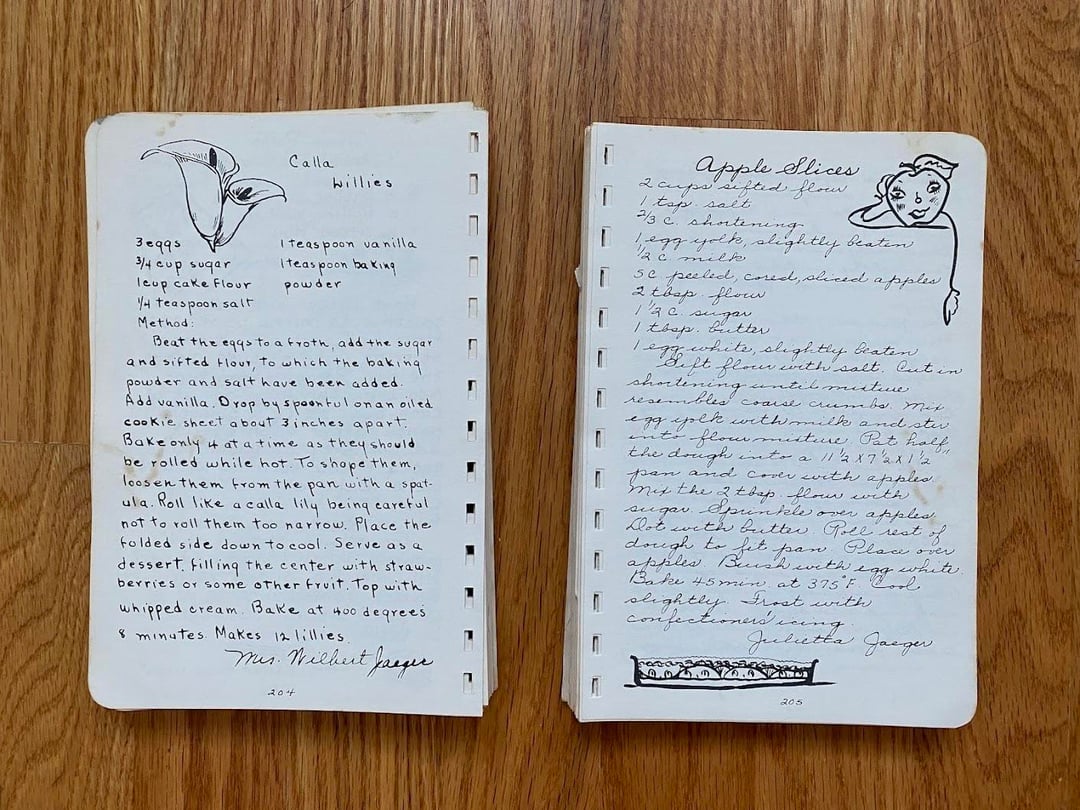 Calla
Lillies
3 eggs
3/4 cup sugar
1 cup cake flour
1/4 teaspoon salt
1 teaspoon vanilla
1 teaspoon baking
powder
Method:
Beat the eggs to a froth, add the sugar
and sifted flour, to which the baking
powder and salt have been added.
Add vanilla. Drop by spoonful on an oiled
cookie sheet about 3 inches apart.
Bake only 4 at a time as they should
be rolled while hot. To shape them,
loosen them from the pan with a spat-
ula. Roll like a calla lily being careful
not to roll them too narrow. Place the
folded side down to cool. Serve as a
dessert, filling the center with straw-
berries or some other fruit. Top with
whipped cream. Bake at 400 degrees
8 minutes. Makes 12 lillies.
Mrs. Wilbert Jaeger
204
Apple Slices
2 cups sifted flour
1 tsp. salt
2/3 c. shortening
1 egg yolk, slightly beaten
1/2 c. milk
5 c. peeled, cored, sliced apples
2 tbsp. flour
1 1/2 c. sugar
1 tbsp. butter
1 egg white, slightly beaten
Sift flour with salt. Cut in
shortening until mixture
resembles coarse crumbs. Mix
egg yolk with milk and stir
into flour mixture. Pat half
the dough into a 11 1/2 x 7 1/2 x 1 1/2"
pan and cover with apples.
Mix the 2 tbsp. flour with
sugar. Sprinkle over apples.
Dot with butter. Roll rest of
dough to fit pan. Place over
apples. Brush with egg white.
Bake 45 min. at 375°F. Cool
slightly. Frost with
confectioners' icing.
Julietta Jaeger
205